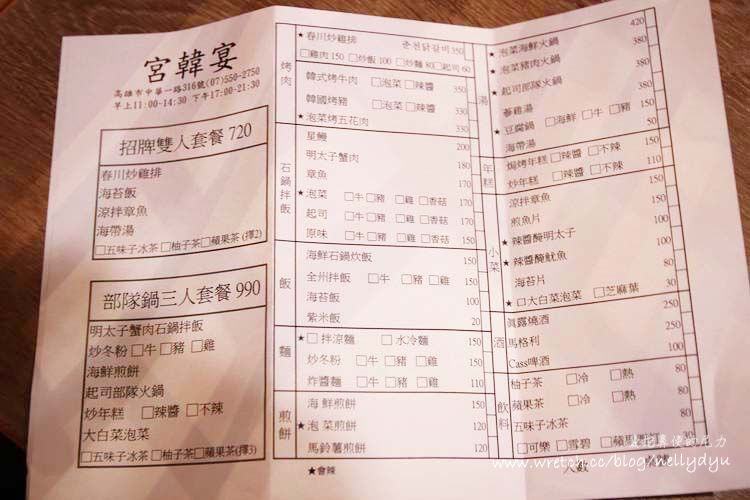 宮韓宴
高雄市中華一路316號(07)550-2750
早上11:00-14:30 下午17:00-21:30
招牌雙人套餐 720
春川炒雞排
海苔飯
涼拌章魚
海帶湯
□五味子冰茶 □柚子茶 □蘋果茶 (擇2)
部隊鍋三人套餐 990
明太子蟹肉石鍋拌飯
炒冬粉 □牛 □豬 □雞
海鮮煎餅
起司部隊火鍋
炒年糕 □辣醬 □不辣
大白菜泡菜
□五味子冰茶 □柚子茶 □蘋果茶(擇3)
烤肉
★春川炒雞排 춘천닭갈비 350
□雞肉 150 □炒飯 100 □炒麵 80 □起司 60
韓式烤牛肉 □泡菜 □辣醬 350
韓國烤豬 □泡菜 □辣醬 330
★泡菜烤五花肉 330
石鍋拌飯
星鰻 200
明太子蟹肉 180
章魚 170
★泡菜 □牛 □豬 □雞 □香菇 170
起司 □牛 □豬 □雞 □香菇 170
原味 □牛 □豬 □雞 □香菇 150
飯
海鮮石鍋炊飯 150
全州拌飯 □牛 □豬 □雞 120
海苔飯 100
紫米飯 20
麵
★□拌涼麵 □水冷麵 150
炒冬粉 □牛 □豬 □雞 150
炸醬麵 □牛 □豬 □雞 120
煎餅
海鮮煎餅 150
★泡菜煎餅 120
馬鈴薯煎餅 120
★會辣
湯
★泡菜海鮮火鍋 420
★泡菜豬肉火鍋
★起司部隊火鍋
蔘雞湯
★豆腐鍋 □海鮮 □牛 □豬
海帶湯 50
年糕
焗烤年糕 □辣醬 □不辣 150
炒年糕 □辣醬 □不辣 110
小菜
涼拌章魚 150
煎魚片 150
★辣醬醃明太子 100
★辣醬醃魷魚 100
海苔片
★□大白菜泡菜 □芝麻葉 30
酒
眞露燒酒
馬格利
Cass啤酒
飲料
柚子茶 □冷 □熱 80
蘋果茶 □冷 □熱 80
五味子冰茶
□可樂 □雪碧 □蘋果
人數
www.wretch.cc/blog/nellydyu